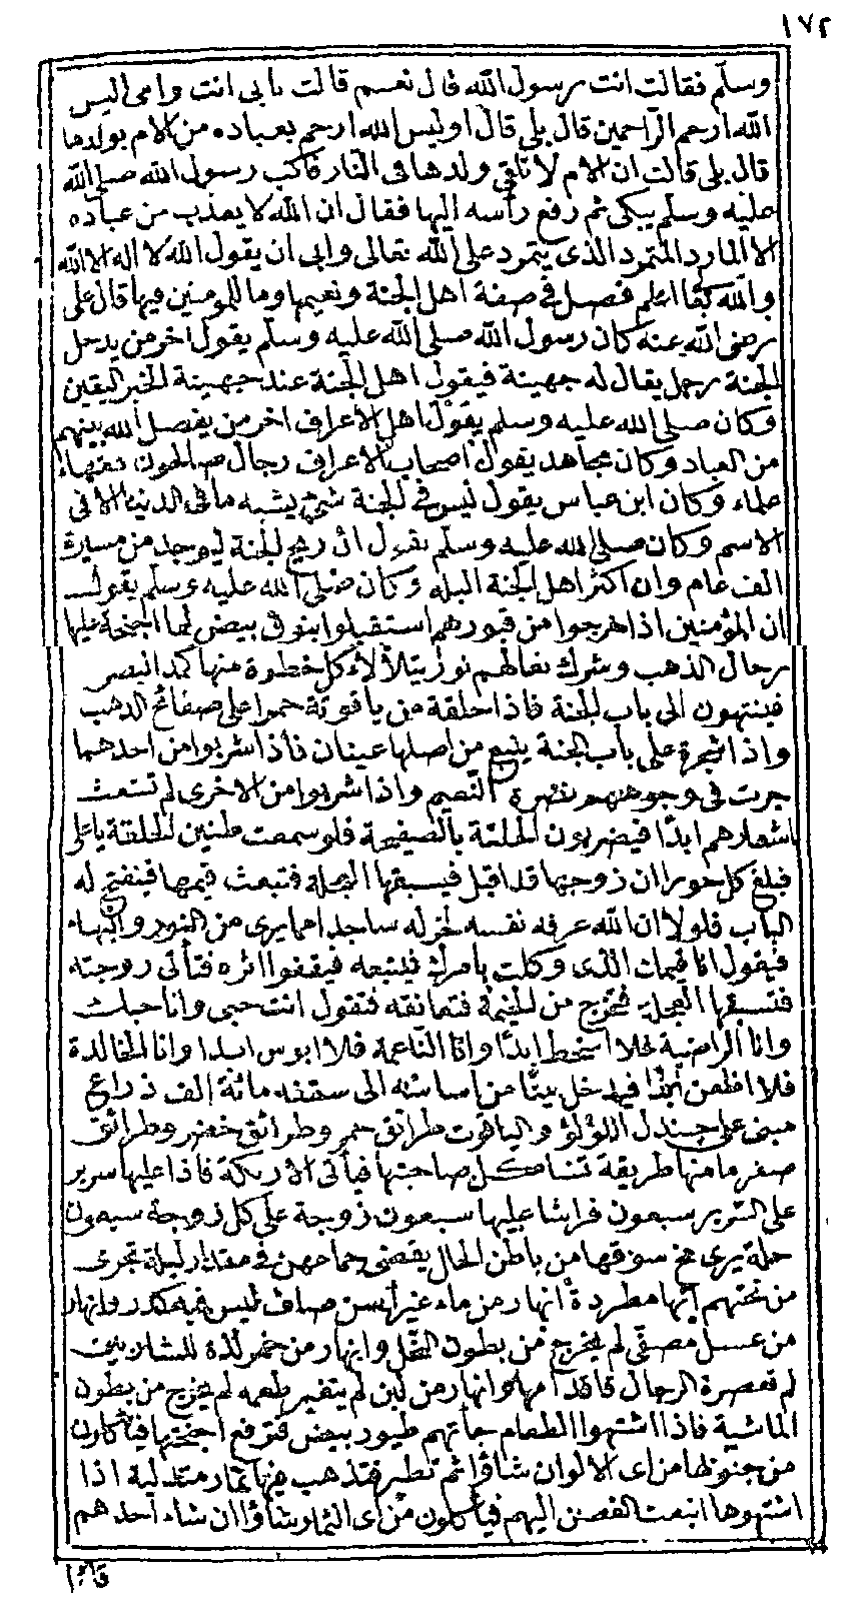 ١٧٢
وسلم فقالت انت رسول الله قال نعم قالت بابى انت وامى اليس
الله ارحم الراحمين قال بلى قال اوليس الله ارحم بعباده من الام بولدها
قال بلى قالت ان الام لا تلقى ولدها فى النار فاكب رسول الله صلى الله
عليه وسلم يبكى ثم رفع رأسه اليها فقال ان الله لا يعذب من عباده
الا المارد المتمرد الذى يتمرد على الله تعالى وابى ان يقول الله لا اله الا الله
والله تعالى اعلم فصل فى صفة اهل الجنة ونعيمها وما للمومنين فيها قال على
رضى الله عنه كان رسول الله صلى الله عليه وسلم يقول اخر من يدخل
الجنة رجل يقال له جهينة فيقول اهل الجنة عند جهينة الخبر اليقين
وكان صلى الله عليه وسلم يقول اهل الاعراف اخر من يفصل الله بينهم
من العباد وكان مجاهد يقول اصحاب الاعراف رجال صالحون فقهاء
علماء وكان ابن عباس يقول ليس فى الجنة شئ يشبه ما فى الدنيا الا فى
الاسم وكان صلى الله عليه وسلم يقول ان ريح الجنة ليوجد من مسيرة
الف عام وان اكثر اهل الجنة البله وكان صلى الله عليه وسلم يقول
ان المؤمنين اذا خرجوا من قبورهم استقبلوا بنوق بيض لها اجنحة عليها
رحال الذهب وشرك نعالهم نور يتلألأ كل خطوة منها كمد البصر
فينتهون الى باب الجنة فاذا حلقة من ياقوتة حمرا على صفائح الذهب
واذا شجرة على باب الجنة ينبع من اصلها عينان فاذا شربوا من احدهما
جرت فى وجوههم نضرة النعيم واذا شربوا من الاخرى لم تشعث
اشعارهم ابدا فيضربون الحلقة بالصفيحة فلو سمعت طنين الحلقة يا على
فبلغ كل حورا ان زوجها قد اقبل فيسبقها العجلة فتبعث قيمها فيفتح له
الباب فلولا ان الله عرفه نفسه لخر له ساجدا مما يرى من النور والبهاء
فيقول انا قيمك الذى وكلت بامرك فيتبعه فيقفوا اثره فتأتى زوجته
فتسبقها العجلة فتخرج من الخيمة فتعانقه فتقول انت حبى وانا حبك
وانا الراضية فلا اسخط ابدا وانا الناعمة فلا ابوس ابدا وانا الخالدة
فلا اظعن ابدا فيدخل بيتا من اساسه الى سقفه مائة الف ذراع
مبنى على جندل اللؤلؤ والياقوت طرائق حمر وطرائق خضر وطرائق
صفر ما منها طريقة تشاكل صاحبتها فيأتى الاريكة فاذا عليها سرير
على السرير سبعون فراشا عليها سبعون زوجة على كل زوجة سبعون
حلة يرى مخ سوقها من باطن الحلل يقضى جماعهن فى مقدار ليلة تجرى
من تحتهم انهار مطردة انهار من ماء غير آسن صاف ليس فيه كدر وانهار
من عسل مصفى لم يخرج من بطون النحل وانهار من خمر لذة للشاربين
لم تعصره الرجال باقدامها وانهار من لبن لم يتغير طعمه لم يخرج من بطون
الماشية فاذا اشتهوا الطعام جاتهم طيور بيض فترفع اجنحتها فيأكلون
من جنوبها من اى الالوان شاؤا ثم تطير فتذهب فيها ثمار متدلية اذا
اشتهوها انبعث الغصن اليهم فيأكلون من اى الثمار شاؤا ان شاء احدهم
قائما